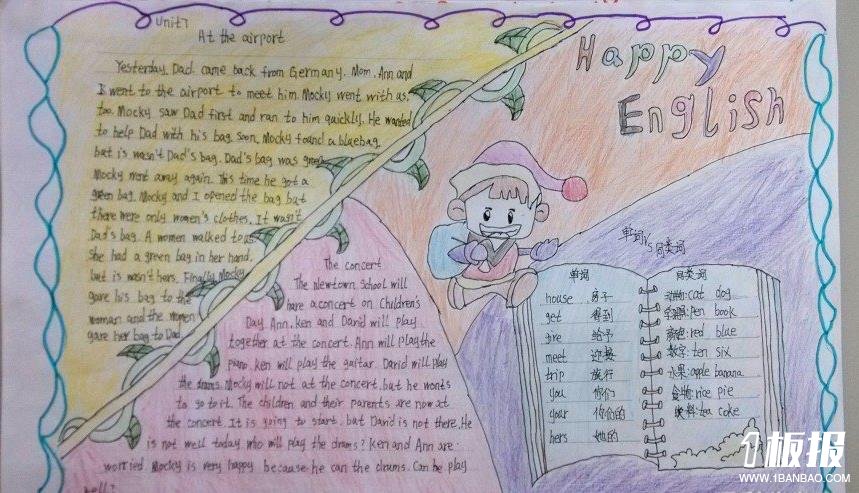 Unit7
At the airport
Yesterday. Dad. came back from Germany. Mom. Ann and
I went to the airport to meet him. Mocky went with us.
too. Mocky saw Dad first and ran to him quickly. He wanted
to help Dad with his bag. Soon. Mocky found a bluebag.
but is wasn't Dad's bag. Dad's bag was green
Mocky went away again. This time he got a
green bag. Mocky and I opened the bag but
there were only women's clothes. It wasn't
Dad's bag. A women walked to us
She had a green bag in her hand.
but is wasn't hers. Finally Mocky
gave his bag to the
woman and the women
gave her bag to Dad
The concert
The Newtown School will
have a concert on Children's
Day. Ann. Ken and David will play
together at the concert. Ann will play the
piano. Ken will play the guitar. David will play
the drums. Mocky will not at the concert. but he wants
to go to it. The children and their parents are now at
the concert. It is going to start. but David is not there. He
is not well today who will play the drums? Ken and Ann are
worried Mocky is very happy because he can the drums. Can he play
well?
Happy
English
单词vs同类词
单词
house 房子
get 得到
give 给予
meet 迎接
trip 旅行
you 你们
your 你们的
hers 她的
同类词
动物:cat dog
pen book
颜色:red blue
数字:ten six
水果:apple banana
食物:rice pie
饮料:tea coke
1板报
WWW.1BANBAO.COM